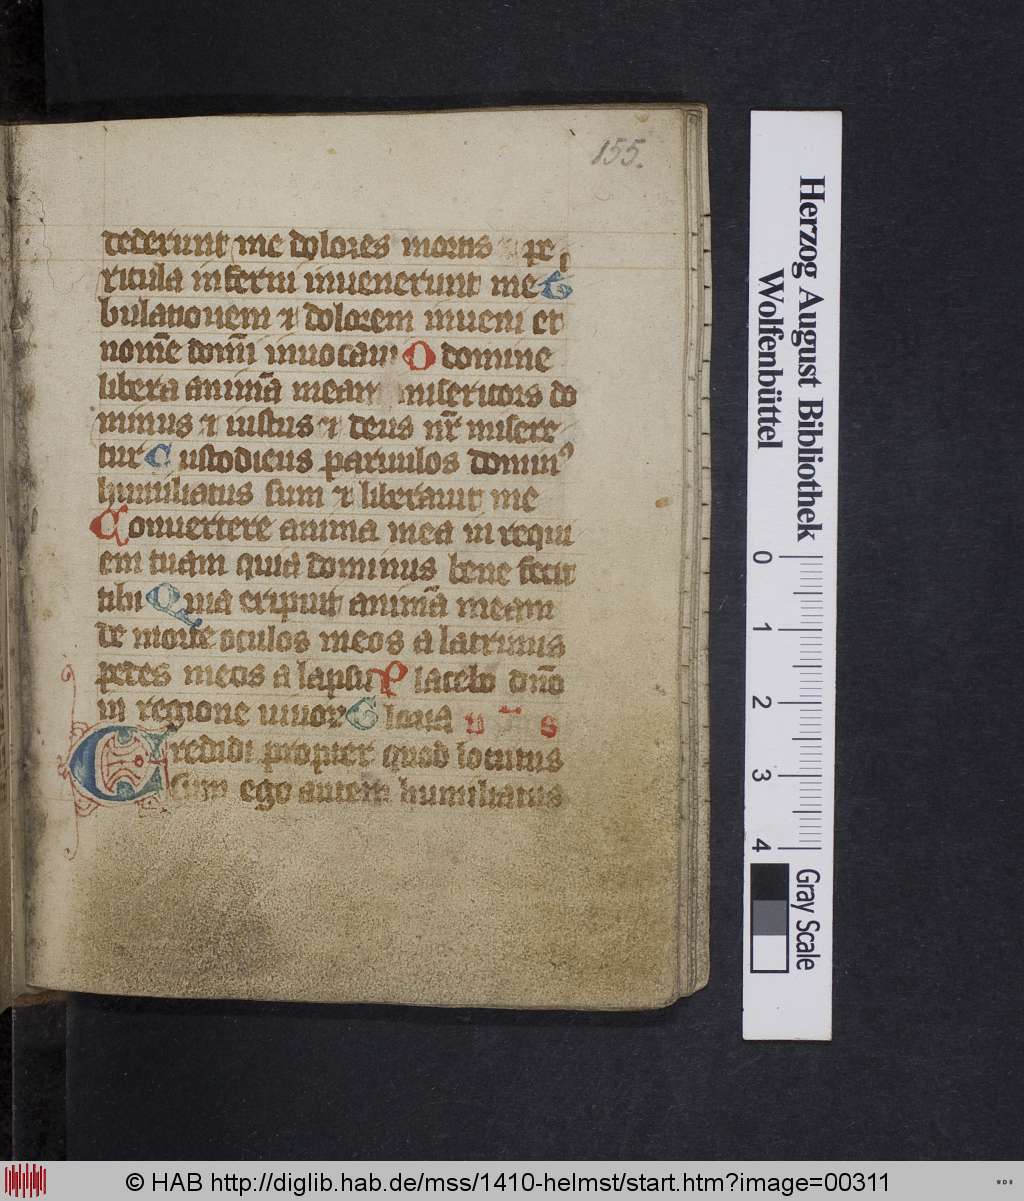 155.
cederunt me dolores mortis pe
ricula inferni invenerunt me T
bulationem ⁊ dolorem inveni et
nom̄e domī invocavi O domine
libera animā meam misericors do
minus ⁊ iustus ⁊ deus nr̄ misere
tur Custodiens parvulos dominꝰ
humiliatus sum ⁊ liberavit me
Convertere anima mea in requi
em tuam quia dominus bene fecit
tibi Quia eripuit animā meam
de morte oculos meos a lacrimis
pedes meos a lapsu Placebo dn̄o
in regione vivor Gloria
Credidi propter quod locutus
sum ego autem humiliatus
Herzog August Bibliothek
Wolfenbüttel
0 1 2 3 4
Gray Scale
© HAB http://diglib.hab.de/mss/1410-helmst/start.htm?image=00311